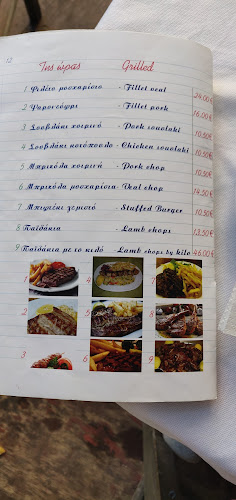 12
Της ώρας Grilled
1 Φιλέτο μοσχαρίσιο - Fillet veal 24.00 €
2 Ψαρονέφρι - Fillet pork 16.00 €
3 Σουβλάκι χοιρινό - Pork souvlaki 10.50 €
4 Σουβλάκι κοτόπουλο - Chicken souvlaki 10.50 €
5 Μπριζόλα χοιρινή - Pork chop 10.50 €
6 Μπριζόλα μοσχαρίσια - Veal chop 14.50 €
7 Μπιφτέκι γεμιστό - Stuffed Burger 10.50 €
8 Παϊδάκια - Lamb chops 13.50 €
9 Παϊδάκια με το κιλό - Lamb chops by kilo 46.00 €
1 4 7
2 5 8
3 6 9